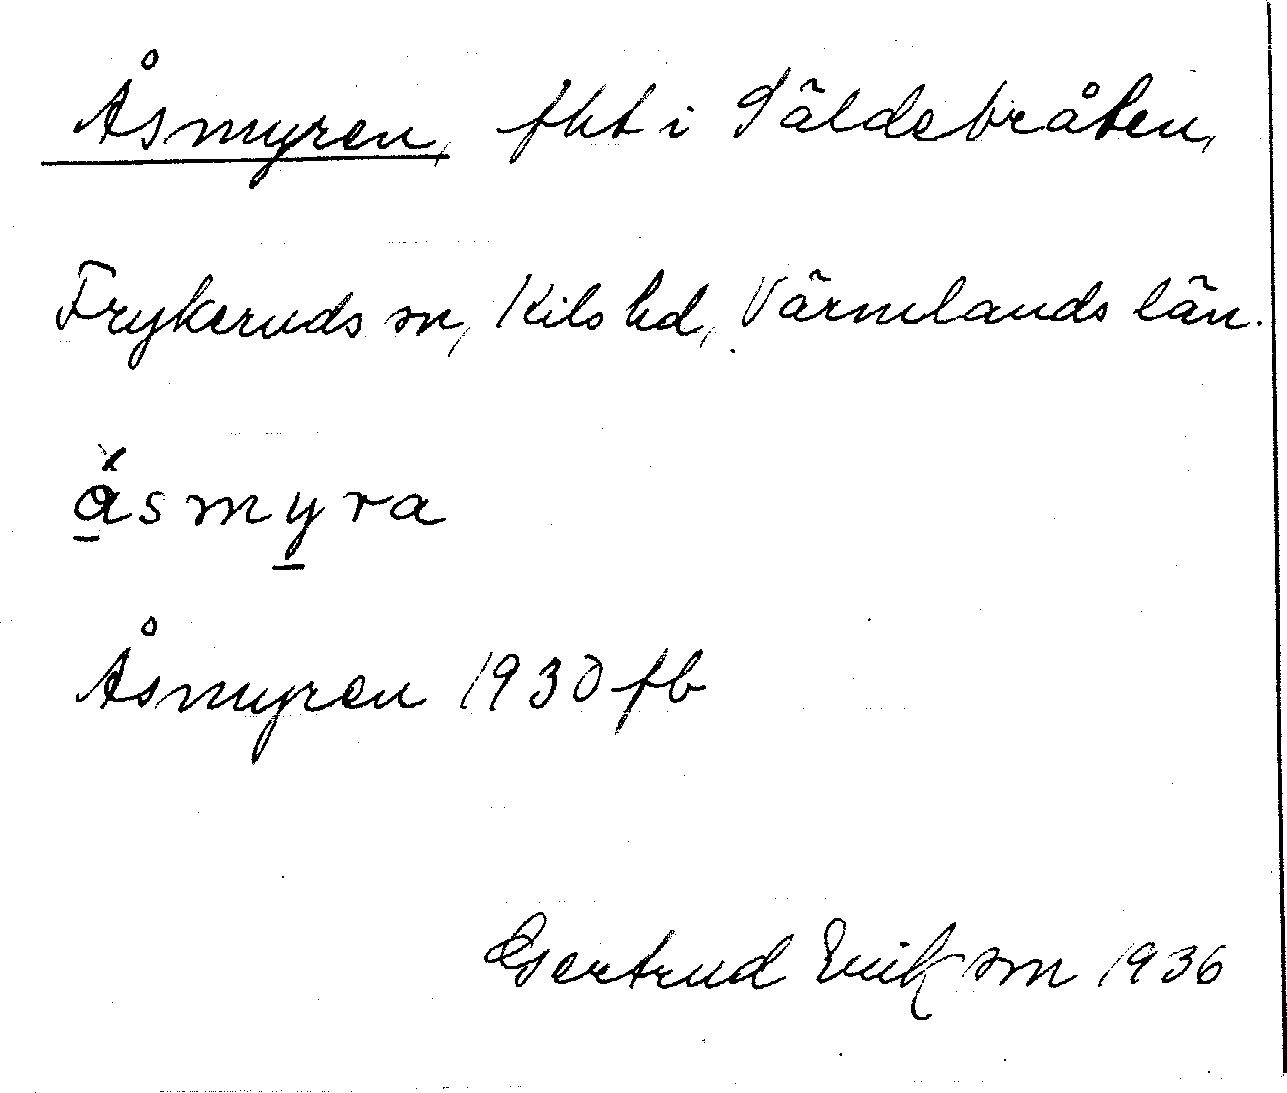 Åsmyren, fkt i Täldebråten,
Frykeruds sn, Kils hd, Värmlands län.
åsmyra
Åsmyren 1930 fb
Gertrud Erikson 1936